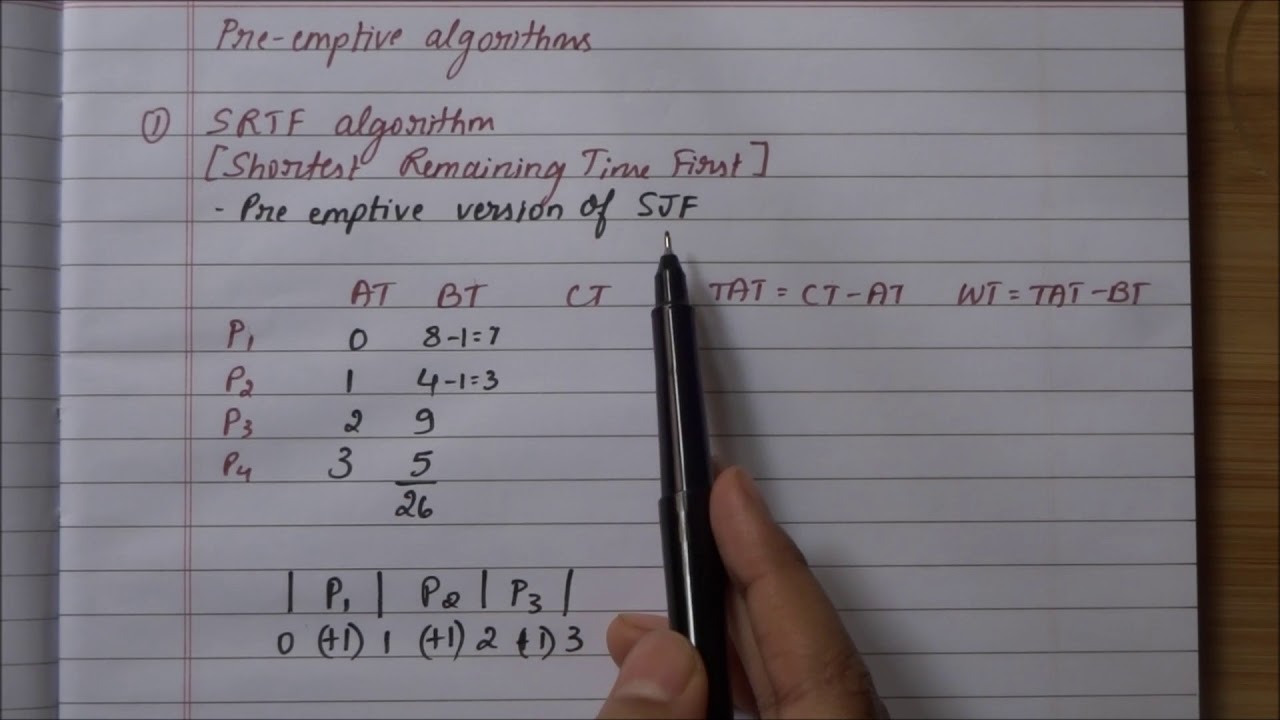 Pre-emptive algorithms
① SRTF algorithm
[Shortest Remaining Time First]
- Pre emptive version of SJF
AT BT CT TAT = CT-AT WT = TAT-BT
P1 0 8-1=7
P2 1 4-1=3
P3 2 9
P4 3 5
26
| P1 | P2 | P3 |
0 (+1) 1 (+1) 2 (+1) 3